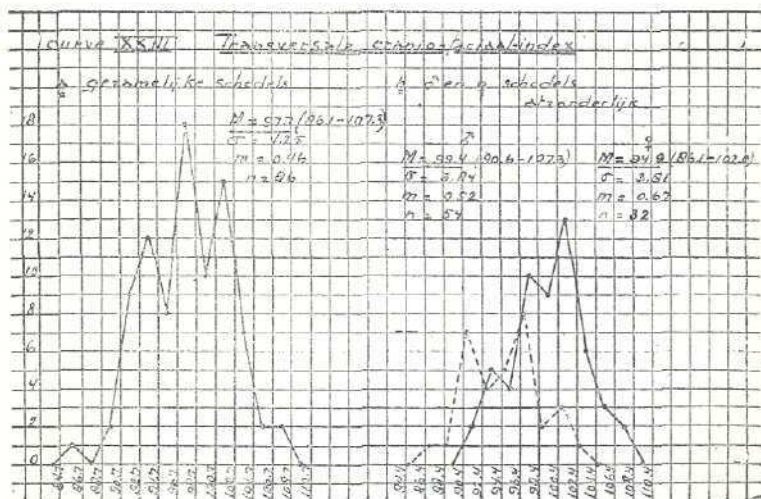 Curve XXIII Transversale cranio-faciaal-index
a gezamelijke schedels
b ♂ en ♀ schedels
afzonderlijk
M = 97.7 (86.1-107.3)
σ = 4.25
m = 0.46
n = 86
♂
M = 99.4 (90.6-107.3)
σ = 3.84
m = 0.52
n = 54
♀
M = 94.9 (86.1-102.0)
σ = 3.81
m = 0.67
n = 32
18
16
14
12
10
8
6
4
2
0
84.7 86.7 88.7 90.7 92.7 94.7 96.7 98.7 100.7 102.7 104.7 106.7 108.7 110.7
84.4 86.4 88.4 90.4 92.4 94.4 96.4 98.4 100.4 102.4 104.4 106.4 108.4 110.4